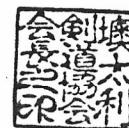 墺太利
剣道協会
会長之印